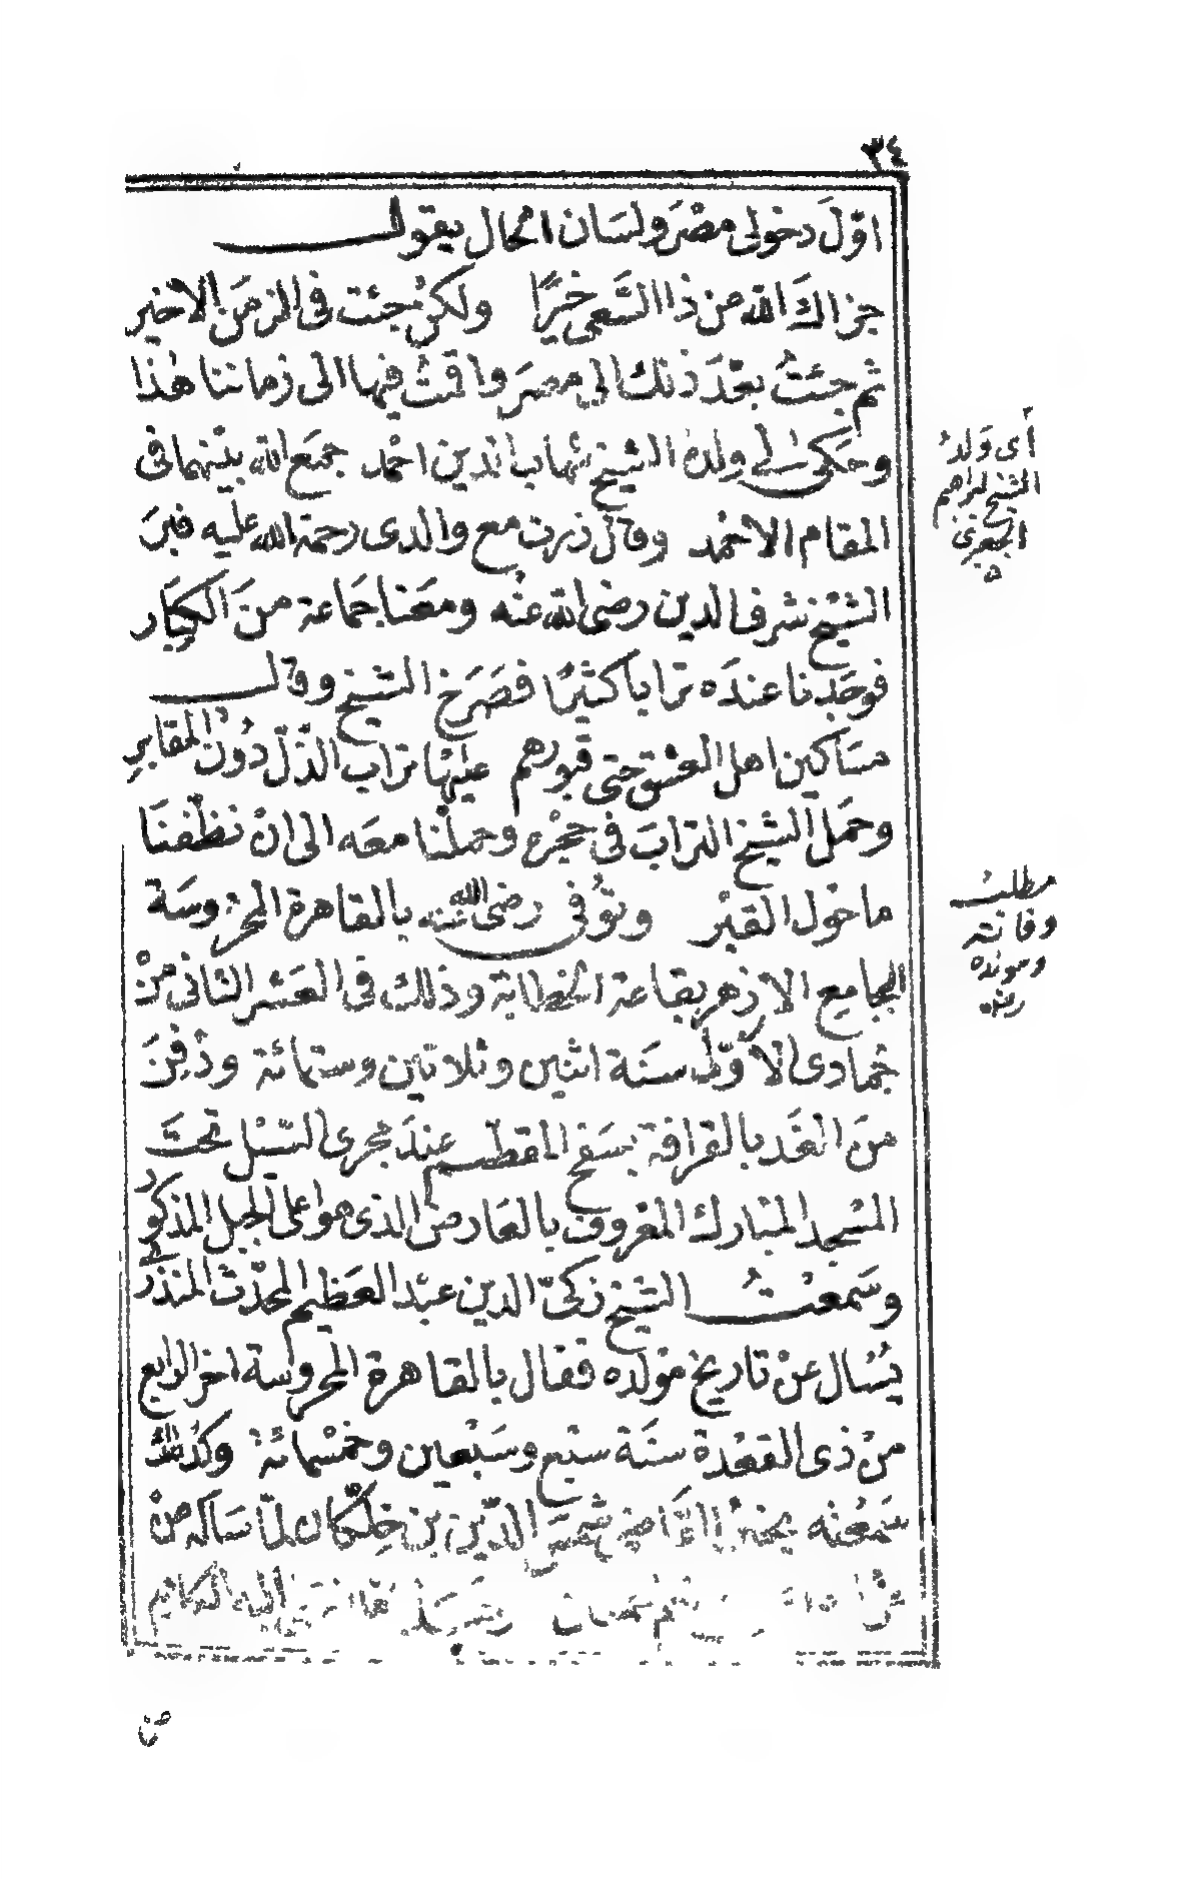 ٣٤
اوّلَ دخولى مصْرَ ولسَان الحال يقول
جزاكَ الله من ذا السَّعى خيرًا ولكنْ جئت فى الزمَنِ الاخيرِ
ثم جئتُ بعْدَ ذلك الى مصرَ واقمتُ فيها الى زماننا هٰذا
وحَكى لى ولدهُ الشيخ شهاب الدين احْمد جمَع الله بيْنهما فى
المقام الاحْمد وقال زرت مع والدى رحمة الله عليه قبرَ
الشيْخ شرف الدين رضى الله عنْه ومعَنا جمَاعة منَ الكبَار
فوجَدنا عندَه ترابا كثيرًا فصَرَخ الشيخ وقال
مسَاكين اهل العشق حتى قبورهم عليْها تراب الذّل دُون المقابرِ
وحمَل الشيخ الترابَ فى حجْره وحملْنا معَه الى انْ نظّفنَا
ما حوْل القبْر وتوُفى رضى الله عنه بالقاهرة المحروسَة
بالجامع الازهر بقاعة الخطابة وذلك فى العَشر الثانى منْ
جُمادى الاوّل سنَة اثنين وثلاثين وستمائة ودُفِنَ
منَ الغَد بالقرافة بسَفح المقطّم عندَ مجرى السّيْل تحتَ
المسْجد المبَارك المعْروف بالعَارض الذى هو اعلى الجبل المذكور
وسَمعْتُ الشيخ زكىّ الدين عبْد العَظيم المحدّث المنذرى
يُسْال عنْ تاريخ موْلده فقال بالقاهرة المحروسة اخر الرابع
منْ ذى القعْدة سنَة ستّ وسَبْعين وخمْسمائة وكذلك
سَمعْته يخبرُ القاضى شمسَ الدّين بن خلّكان لمّا سَاله من
أى وَلد
الشيخ ابراهيم
الجعبرى
مطلبُ
وفاته
ومولده
رضه